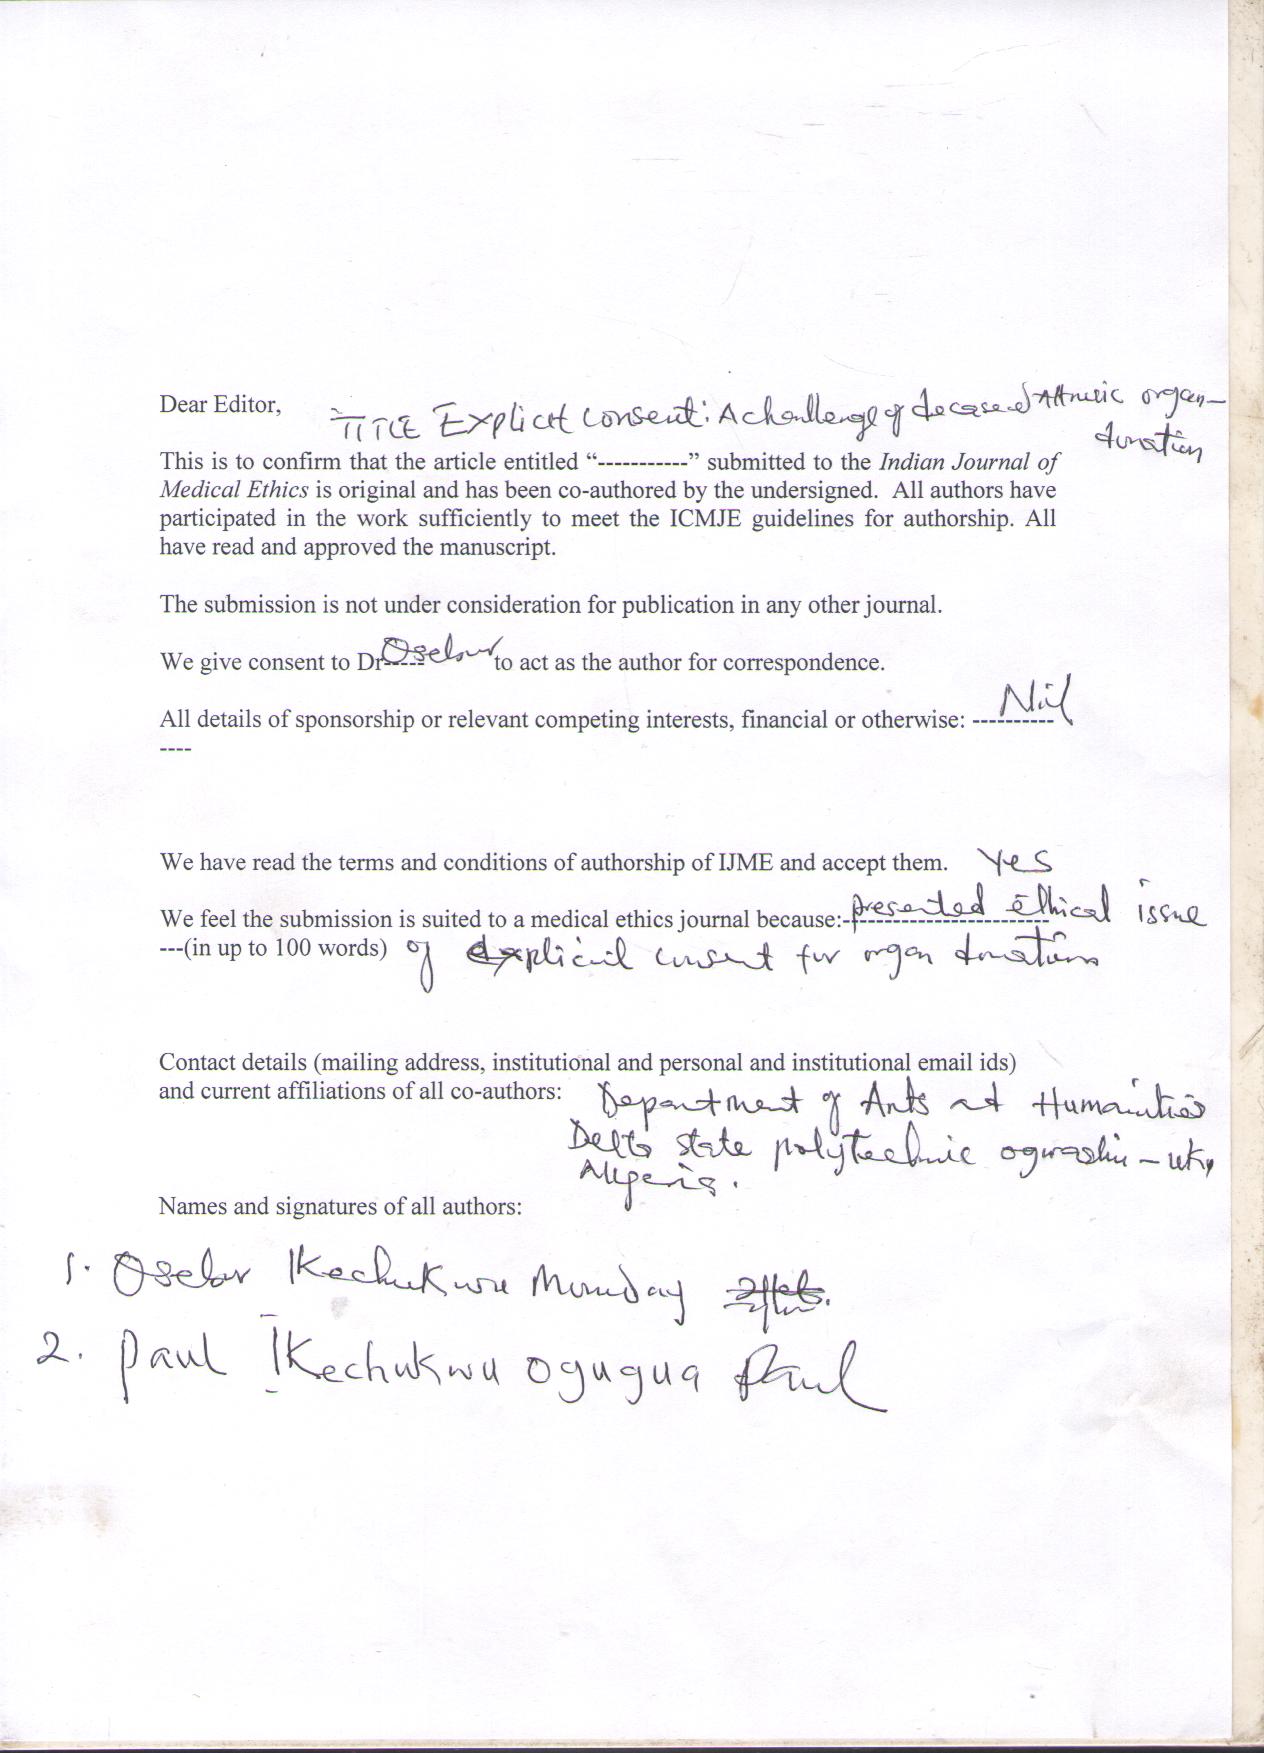 Dear Editor,
TITLE Explicit Consent: A challenge of deceased Altruistic organ-
donation
This is to confirm that the article entitled “-----------” submitted to the Indian Journal of
Medical Ethics is original and has been co-authored by the undersigned. All authors have
participated in the work sufficiently to meet the ICMJE guidelines for authorship. All
have read and approved the manuscript.
The submission is not under consideration for publication in any other journal.
We give consent to Dr----- Oselour to act as the author for correspondence.
All details of sponsorship or relevant competing interests, financial or otherwise: ---------- Nil
----
We have read the terms and conditions of authorship of IJME and accept them. Yes
We feel the submission is suited to a medical ethics journal because:- presented ethical issue
---(in up to 100 words) of explicit consent for organ donation
Contact details (mailing address, institutional and personal and institutional email ids)
and current affiliations of all co-authors: Department of Arts and Humanities
Delta state polytechnic ogwashi-uku
Nigeria.
Names and signatures of all authors:
1. Ikechukwu Monday
2. Paul Ikechukwu Ogugua Paul